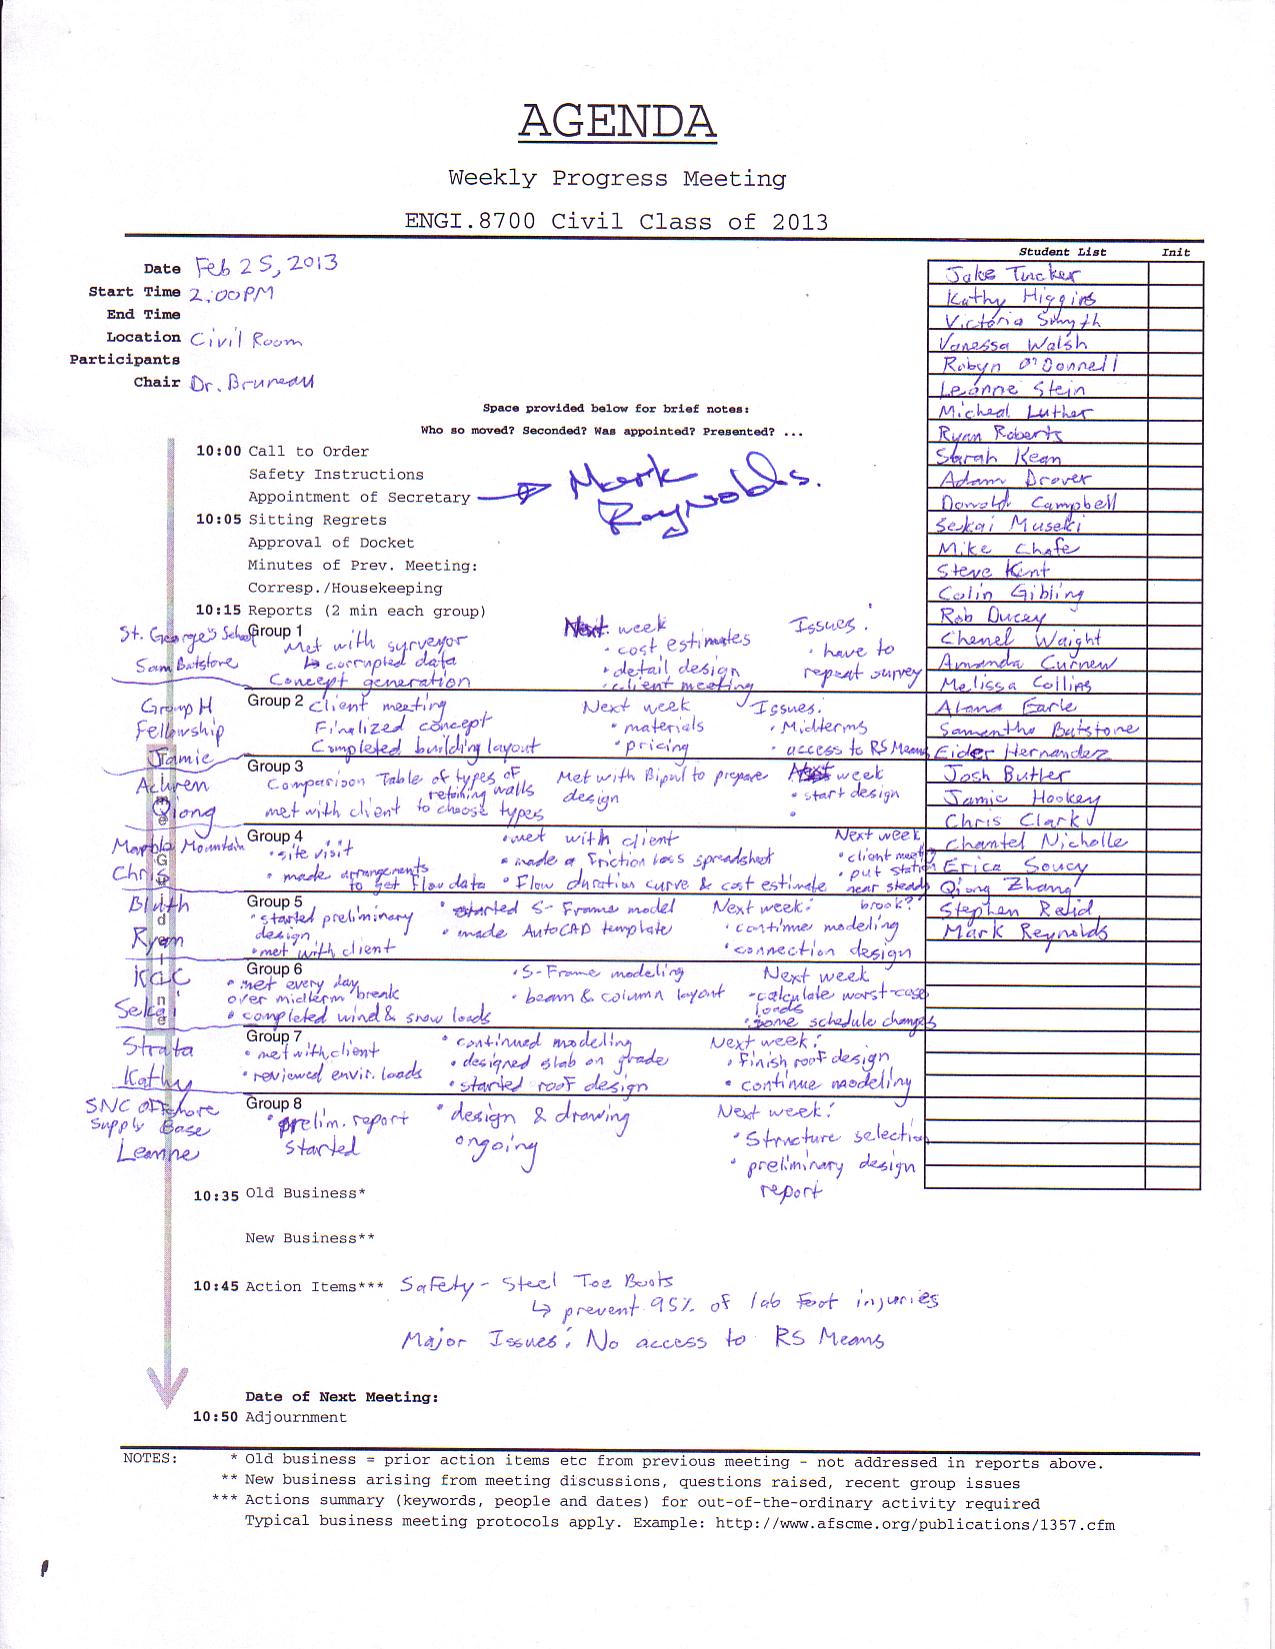 AGENDA
Weekly Progress Meeting
ENGI.8700 Civil Class of 2013
Student List Init
Date Feb 25, 2013
Start Time 2:00PM
End Time
Location Civil Room
Participants
Chair Dr. Bruneau
Jake Tucker
Kathy Higgins
Victoria Smyth
Vanessa Walsh
Robyn O'Donnell
Leanne Stein
Micheal Luther
Ryan Roberts
Sarah Kean
Adam Drover
Donald Campbell
Sekai Museki
Mike Chafe
Steve Kent
Colin Gibling
Rob Ducey
Chenel Waight
Amanda Curnew
Melissa Collins
Alana Earle
Samantha Batstone
Eider Hernandez
Josh Butler
Jamie Hookey
Chris Clark
Chantel Nicholle
Erica Soucy
Qiong Zhang
Stephen Reid
Mark Reynolds
Space provided below for brief notes:
Who so moved? Seconded? Was appointed? Presented? ...
10:00 Call to Order
Safety Instructions
Appointment of Secretary → Mark Reynolds.
10:05 Sitting Regrets
Approval of Docket
Minutes of Prev. Meeting:
Corresp./Housekeeping
10:15 Reports (2 min each group)
Time Guideline
St. George's School
Sam Batstone
Group 1
Met with surveyor
↳ corrupted data
Concept generation
Next week
• cost estimates
• detail design
• client meeting
Issues:
• have to
repeat survey
Group H
Fellowship
Jamie
Group 2 client meeting
Finalized concept
Completed building layout
Next week
• materials
• pricing
Issues:
• Midterms
• access to RS Means
Qiong
Group 3
Comparison Table of types of
retaining walls
met with client to choose types
Met with Bipul to prepare
design
Next week
• start design
•
Marble Mountain
Chris
Group 4
• site visit
• made arrangements
to get flow data
• met with client
• made a friction loss spreadsheet
• Flow duration curve & cost estimate
Next week
• client meet
• put station
near steady
brook?
Ryan
Group 5
• started preliminary
design
• met with client
• started S-Frame model
• made AutoCAD template
Next week:
• continue modeling
• connection design
Sekai
Group 6
• met every day
over midterm break
• completed wind & snow loads
• S-Frame modeling
• beam & column layout
Next week
• calculate worst-case
loads
• some schedule changes
Strata
Kathy
Group 7
• met with client
• reviewed envir. loads
• continued modeling
• designed slab on grade
• started roof design
Next week:
• Finish roof design
• continue modeling
SNC Offshore
Supply Base
Leanne
Group 8
• prelim. report
started
• design & drawing
ongoing
Next week:
• Structure selection
• preliminary design
report
10:35 Old Business*
New Business**
10:45 Action Items*** Safety - Steel Toe Boots
↳ prevent 95% of lab foot injuries
Major Issues: No access to RS Means
Date of Next Meeting:
10:50 Adjournment
NOTES: * Old business = prior action items etc from previous meeting - not addressed in reports above.
** New business arising from meeting discussions, questions raised, recent group issues
*** Actions summary (keywords, people and dates) for out-of-the-ordinary activity required
Typical business meeting protocols apply. Example: http://www.afscme.org/publications/1357.cfm